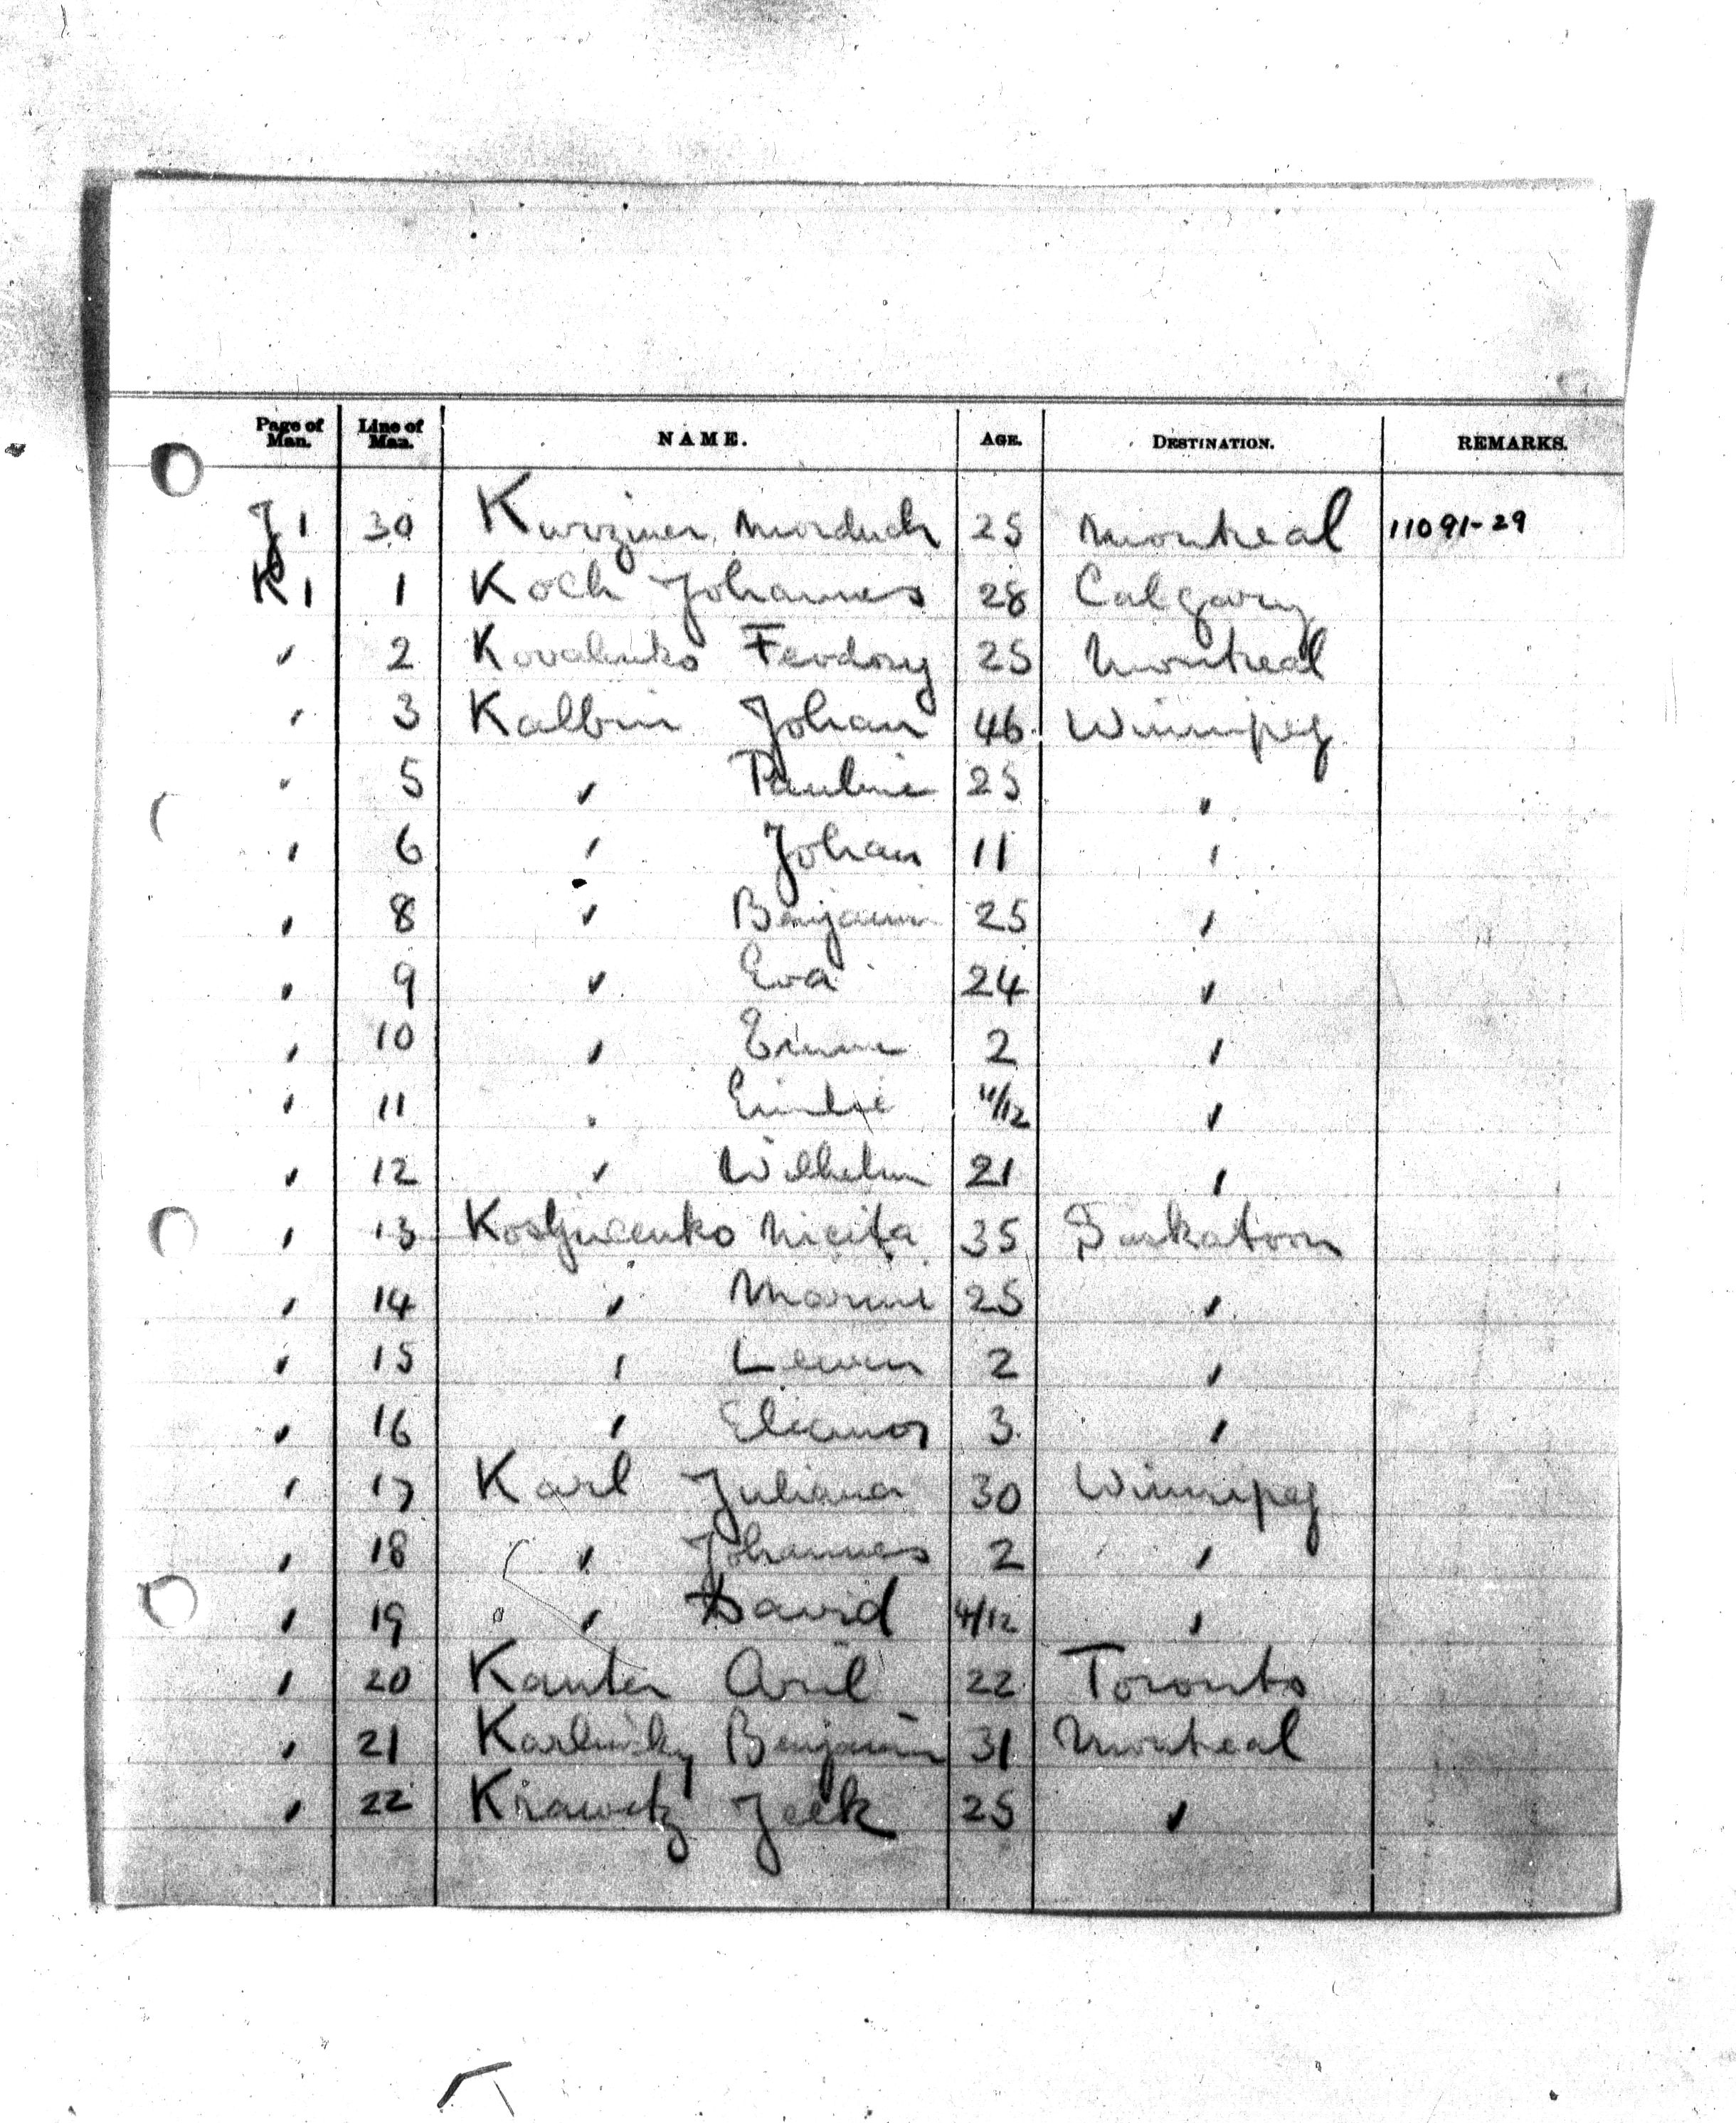 Page of Man. Line of Man. NAME. AGE. DESTINATION. REMARKS.
J1 30 Kurziner Morduch 25 Montreal 11091-29
K1 1 Koch Johannes 28 Calgary
" 2 Kovalenko Feodory 25 Montreal
" 3 Kalbin Johan 46 Winnipeg
" 5 " Pauline 25 "
" 6 " Johan 11 "
" 8 " Benjamin 25 "
" 9 " Eva 24 "
" 10 " 2 "
" 11 " Emilie 11/12 "
" 12 " Wilhelm 21 "
" 13 Nicita 35 Saskatoon
" 14 " 25 "
" 15 " 2 "
" 16 " Eleanor 3 "
" 17 Karl Juliana 30 Winnipeg
" 18 " Johannes 2 "
" 19 " David 4/12 "
" 20 Kanter Aril 22 Toronto
" 21 Karlinsky Benjamin 31 Montreal
" 22 Krawetz Jeek 25 "